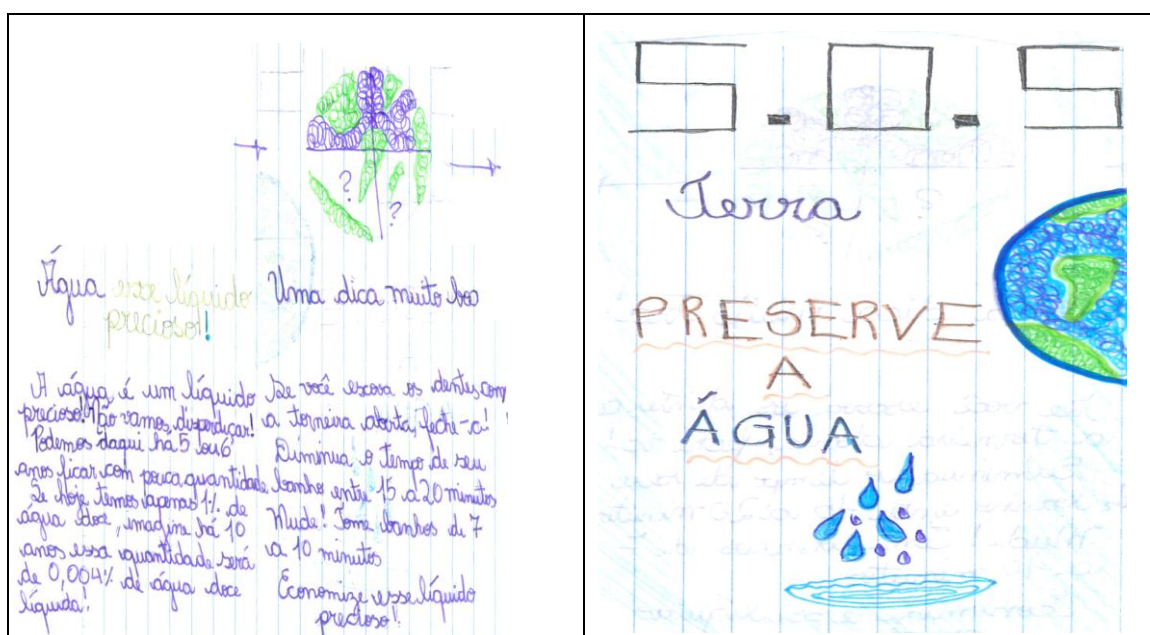 ?
?
Água esse líquido
precioso!!
A água é um líquido
precioso! Não vamos, disperdiçar!
Podemos daqui há 5 ou 6
anos ficar com pouca quantidade
Se hoje temos apenas 1% de
água doce, imagine há 10
anos essa quantidade será
de 0,004% de água doce
líquida!
Uma dica muito boa
Se você escova os dentes com
a torneira aberta, feche-a!
Diminua o tempo de seu
banho entre 15 a 20 minutos
Mude! Tome banhos de 7
a 10 minutos
Economize esse líquido
precioso!!
S.O.S
Terra
PRESERVE
A
ÁGUA